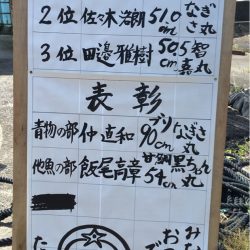 2位 佐々木浩朗 51.0cm なぎさ丸
3位 田邊雅樹 50.5cm 智嘉丸
表彰
青物の部 仲 直和 ブリ90cm なぎさ丸
他魚の部 飯尾高章 甘鯛54cm 黒ちゃん丸